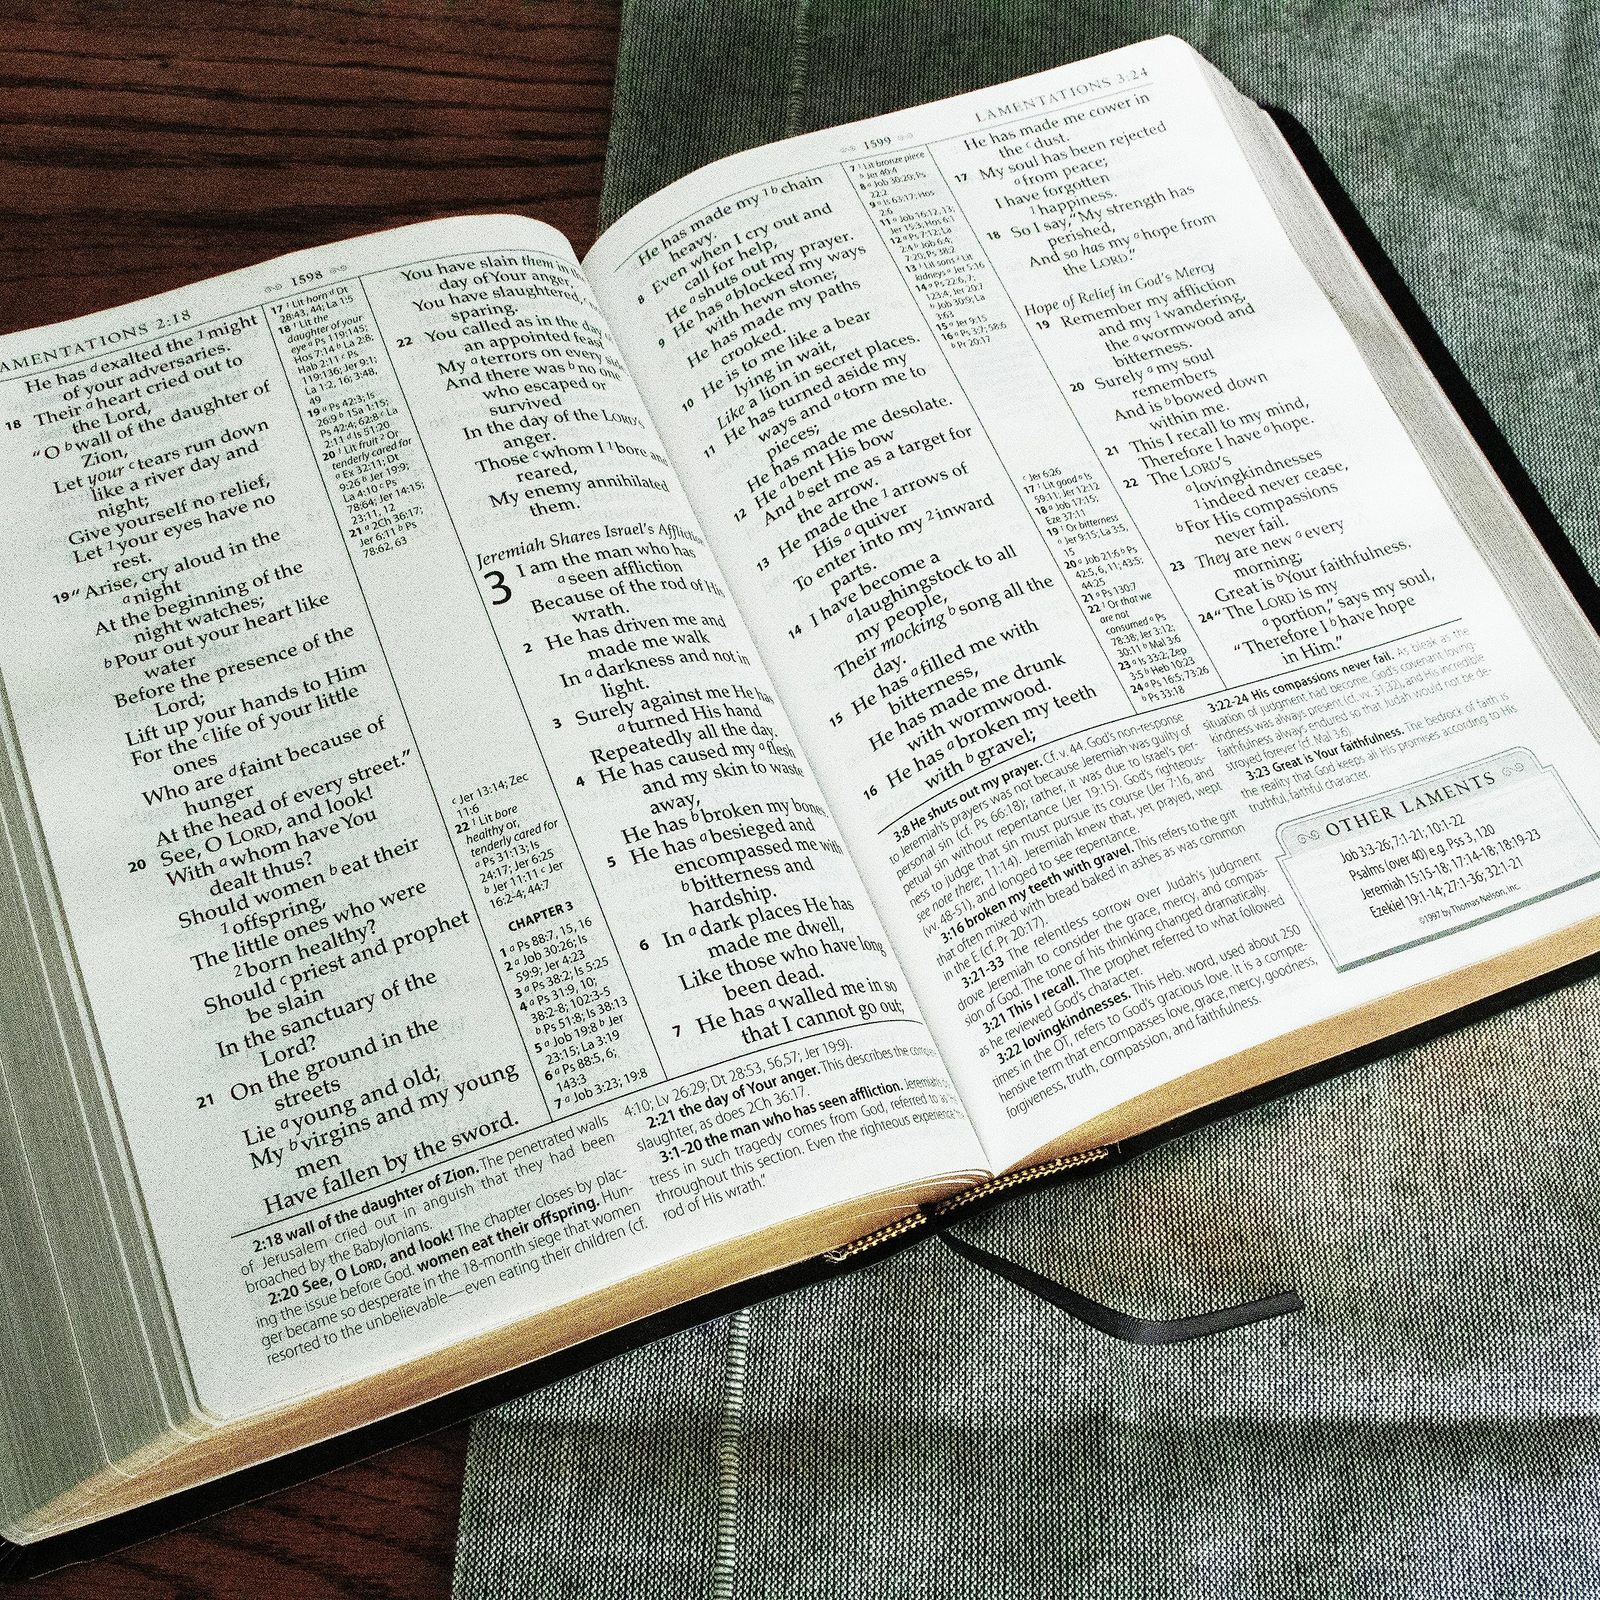 LAMENTATIONS 2:18
1598
He has d exalted the 1 might
of your adversaries.
18 Their a heart cried out to
the Lord,
"O b wall of the daughter of
Zion,
Let your c tears run down
like a river day and
night;
Give yourself no relief,
Let 1 your eyes have no
rest.
19 "Arise, cry aloud in the
a night
At the beginning of the
night watches;
b Pour out your heart like
water
Before the presence of the
Lord;
Lift up your hands to Him
For the c life of your little
ones
Who are d faint because of
hunger
At the head of every street."
20 See, O LORD, and look!
With a whom have You
dealt thus?
Should women b eat their
1 offspring,
The little ones who were
2 born healthy?
Should c priest and prophet
be slain
In the sanctuary of the
Lord?
21 On the ground in the
streets
Lie a young and old;
My b virgins and my young
men
Have fallen by the sword.
17 1 Lit horn d Dt
28:43, 44; La 1:5
18 1 Lit the
daughter of your
eye a Ps 119:145;
Hos 7:14 b La 2:8;
Hab 2:11 c Ps
119:136; Jer 9:1;
La 1:2, 16; 3:48,
49
19 a Ps 42:3; Is
26:9 b 1Sa 1:15;
Ps 42:4; 62:8 c La
2:11 d Is 51:20
20 1 Lit fruit 2 Or
tenderly cared for
a Ex 32:11; Dt
9:26 b Jer 19:9;
La 4:10 c Ps
78:64; Jer 14:15;
23:11, 12
21 a 2Ch 36:17;
Jer 6:11 b Ps
78:62, 63
c Jer 13:14; Zec
11:6
22 1 Lit bore
healthy or,
tenderly cared for
a Ps 31:13; Is
24:17; Jer 6:25
b Jer 11:11 c Jer
16:2-4; 44:7
CHAPTER 3
1 a Ps 88:7, 15, 16
2 a Job 30:26; Is
59:9; Jer 4:23
3 a Ps 38:2; Is 5:25
4 a Ps 31:9, 10;
38:2-8; 102:3-5
b Ps 51:8; Is 38:13
5 a Job 19:8 b Jer
23:15; La 3:19
6 a Ps 88:5, 6;
143:3
7 a Job 3:23; 19:8
You have slain them in the
day of Your anger,
You have slaughtered,
sparing.
22 You called as in the day
an appointed feast
My a terrors on every side
And there was b no one
who escaped or
survived
In the day of the LORD'S
anger.
Those c whom I 1 bore and
reared,
My enemy annihilated
them.
Jeremiah Shares Israel's Affliction
3 I am the man who has
a seen affliction
Because of the rod of His
wrath.
2 He has driven me and
made me walk
In a darkness and not in
light.
3 Surely against me He has
a turned His hand
Repeatedly all the day.
4 He has caused my a flesh
and my skin to waste
away,
He has b broken my bones.
5 He has a besieged and
encompassed me with
b bitterness and
hardship.
6 In a dark places He has
made me dwell,
Like those who have long
been dead.
7 He has a walled me in so
that I cannot go out;
2:18 wall of the daughter of Zion. The penetrated walls
of Jerusalem cried out in anguish that they had been
broached by the Babylonians.
2:20 See, O LORD, and look! The chapter closes by plac-
ing the issue before God. women eat their offspring. Hun-
ger became so desperate in the 18-month siege that women
resorted to the unbelievable—even eating their children (cf.
4:10; Lv 26:29; Dt 28:53, 56,57; Jer 19:9).
2:21 the day of Your anger. This describes the
slaughter, as does 2Ch 36:17.
3:1-20 the man who has seen affliction. Jeremiah's
tress in such tragedy comes from God, referred to as
throughout this section. Even the righteous experience
rod of His wrath."
1599
LAMENTATIONS 3:24
He has made my 1 b chain
heavy.
8 Even when I cry out and
call for help,
He a shuts out my prayer.
9 He has a blocked my ways
with hewn stone;
He has made my paths
crooked.
10 He is to me like a bear
lying in wait,
Like a lion in secret places.
11 He has turned aside my
ways and a torn me to
pieces;
He has made me desolate.
12 He a bent His bow
And b set me as a target for
the arrow.
13 He made the 1 arrows of
His a quiver
To enter into my 2 inward
parts.
14 I have become a
a laughingstock to all
my people,
Their mocking b song all the
day.
15 He has a filled me with
bitterness,
He has made me drunk
with wormwood.
16 He has a broken my teeth
with b gravel;
7 1 Lit bronze piece
b Jer 40:4
8 a Job 30:20; Ps
22:2
9 a Is 63:17; Hos
2:6
11 a Job 16:12, 13;
Jer 15:3; Hos 6:1
12 a Ps 7:12; La
2:4 b Job 6:4;
7:20; Ps 38:2
13 1 Lit sons 2 Lit
kidneys a Jer 5:16
14 a Ps 22:6, 7;
123:4; Jer 20:7
b Job 30:9; La
3:63
15 a Jer 9:15
16 a Ps 3:7; 58:6
b Pr 20:17
c Jer 6:26
17 1 Lit good a Is
59:11; Jer 12:12
18 a Job 17:15;
Eze 37:11
19 1 Or bitterness
a Jer 9:15; La 3:5,
15
20 a Job 21:6 b Ps
42:5, 6, 11; 43:5;
44:25
21 a Ps 130:7
22 1 Or that we
are not
consumed a Ps
78:38; Jer 3:12;
30:11 b Mal 3:6
23 a Is 33:2; Zep
3:5 b Heb 10:23
24 a Ps 16:5; 73:26
b Ps 33:18
He has made me cower in
the c dust.
17 My soul has been rejected
a from peace;
I have forgotten
1 happiness.
18 So I say, "My strength has
perished,
And so has my a hope from
the LORD."
Hope of Relief in God's Mercy
19 Remember my affliction
and my 1 wandering,
the a wormwood and
bitterness.
20 Surely a my soul
remembers
And is b bowed down
within me.
21 This I recall to my mind,
Therefore I have a hope.
22 The LORD'S
a lovingkindnesses
1 indeed never cease,
b For His compassions
never fail.
23 They are new a every
morning;
Great is b Your faithfulness.
24 "The LORD is my
a portion," says my soul,
"Therefore I b have hope
in Him."
3:8 He shuts out my prayer. Cf. v. 44. God's non-response
to Jeremiah's prayers was not because Jeremiah was guilty of
personal sin (cf. Ps 66:18), rather, it was due to Israel's per-
petual sin without repentance (Jer 19:15). God's righteous-
ness to judge that sin must pursue its course (Jer 7:16, and
see note there; 11:14). Jeremiah knew that, yet prayed, wept
(vv. 48-51), and longed to see repentance.
3:16 broken my teeth with gravel. This refers to the grit
that often mixed with bread baked in ashes as was common
in the E (cf. Pr 20:17).
3:21-33 The relentless sorrow over Judah's judgment
drove Jeremiah to consider the grace, mercy, and compas-
sion of God. The tone of his thinking changed dramatically.
3:21 This I recall. The prophet referred to what followed
as he reviewed God's character.
3:22 lovingkindnesses. This Heb. word, used about 250
times in the OT, refers to God's gracious love. It is a compre-
hensive term that encompasses love, grace, mercy, goodness,
forgiveness, truth, compassion, and faithfulness.
3:22-24 His compassions never fail. As bleak as the
situation of judgment had become, God's covenant loving-
kindness was always present (cf. vv. 31,32), and His incredible
faithfulness always endured so that Judah would not be de-
stroyed forever (cf. Mal 3:6).
3:23 Great is Your faithfulness. The bedrock of faith is
the reality that God keeps all His promises according to His
truthful, faithful character.
OTHER LAMENTS
Job 3:3-26; 7:1-21; 10:1-22
Psalms (over 40) e.g. Pss 3, 120
Jeremiah 15:15-18; 17:14-18; 18:19-23
Ezekiel 19:1-14; 27:1-36; 32:1-21
©1997 by Thomas Nelson, Inc.